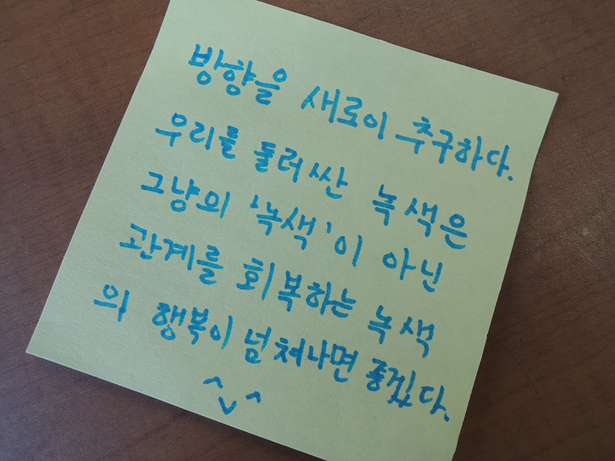 방향을 새로이 추구하다.
우리를 둘러싼 녹색은
그냥의 '녹색'이 아닌
관계를 회복하는 녹색
의 행복이 넘쳐나면 좋겠다.
^ᴗ^